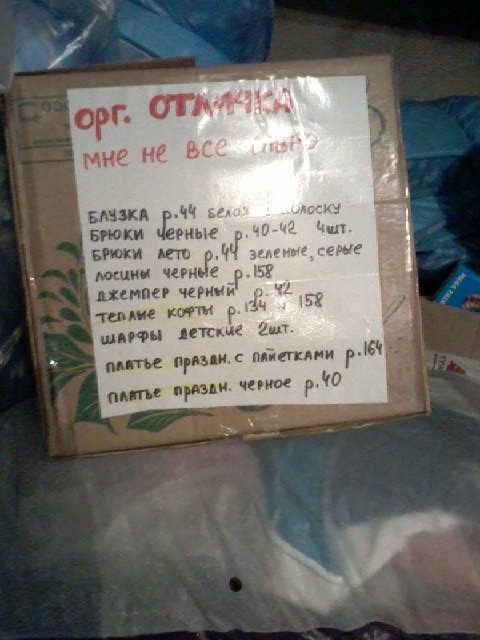 орг. ОТЛИЧКА
мне не все
БЛУЗКА р.44 белая полоску
БРЮКИ ЧЕРНЫЕ р.40-42 4шт.
БРЮКИ ЛЕТО р.44 зеленые, серые
лосины черные р.158
джемпер черный р.42
теплые кофты р.134 158
шарфы детские 2шт.
платье праздн. с пайетками р.164
платье праздн. черное р.40